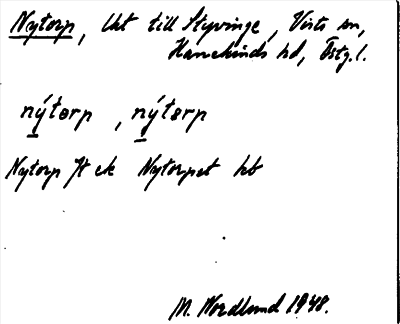 Nytorp, Uht till Styvinge, Vists sn,
Hanekinds hd, Östg. l.
nýtɵrp, nýtɵrp
Nytorp Jt ek Nytorpet hb
M. Nordlund 1948.